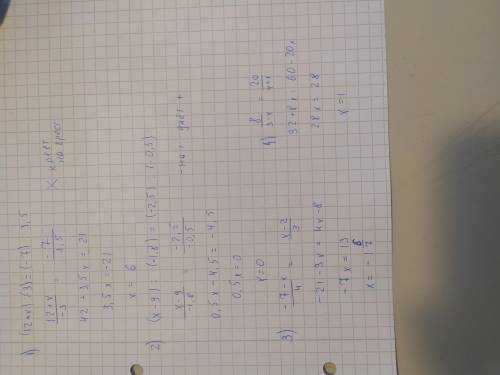 1) (12+x) : (3) = (-7) : 3,5
12+x / -3 = -7 / 3,5
× крест на крест
42 + 3,5x = 21
3,5x = -21
x = 6
2) (x-9) : (-1,8) = (-2,5) : (-0,5)
x-9 / -1,8 = -2,5 / -0,5
0,5x - 4,5 = -4,5
0,5x = 0
x = 0
3) -7-x / 4 = x-2 / 3
-21 - 3x = 4x - 8
-7x = 13
x = -1 6/7
4) 8 / 3-x = 20 / 4+x
32 + 8x = 60 - 20x
28x = 28
x = 1